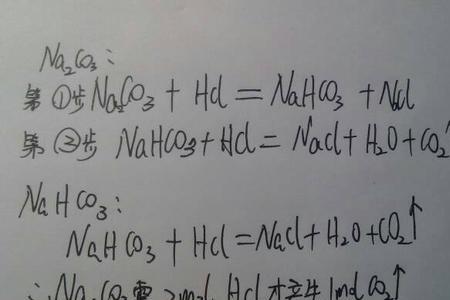 Na₂CO₃:
第①步 Na₂CO₃ + HCl = NaHCO₃ + NaCl
第②步 NaHCO₃ + HCl = NaCl + H₂O + CO₂↑
NaHCO₃:
NaHCO₃ + HCl = NaCl + H₂O + CO₂↑
∴ Na₂CO₃需2mol HCl才产生1mol CO₂↑